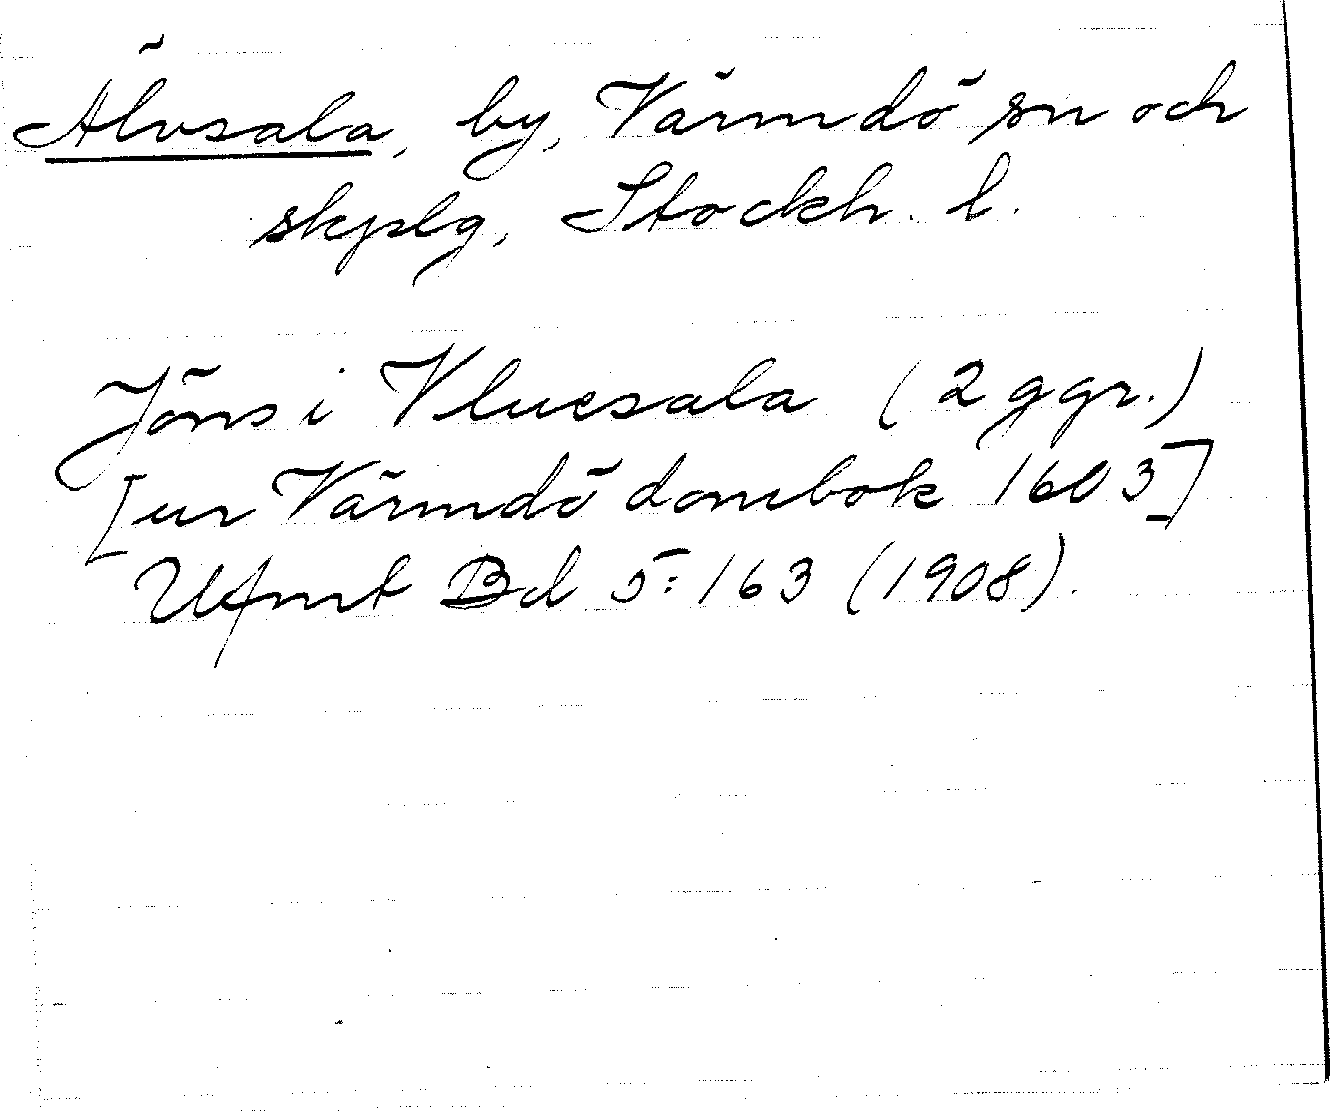 Älvsala, by, Värmdö sn och
skplg, Stockh. l.
Jöns i Vluesala (2 ggr.)
[ur Värmdö dombok 1603]
Ufmt Bd 5:163 (1908).